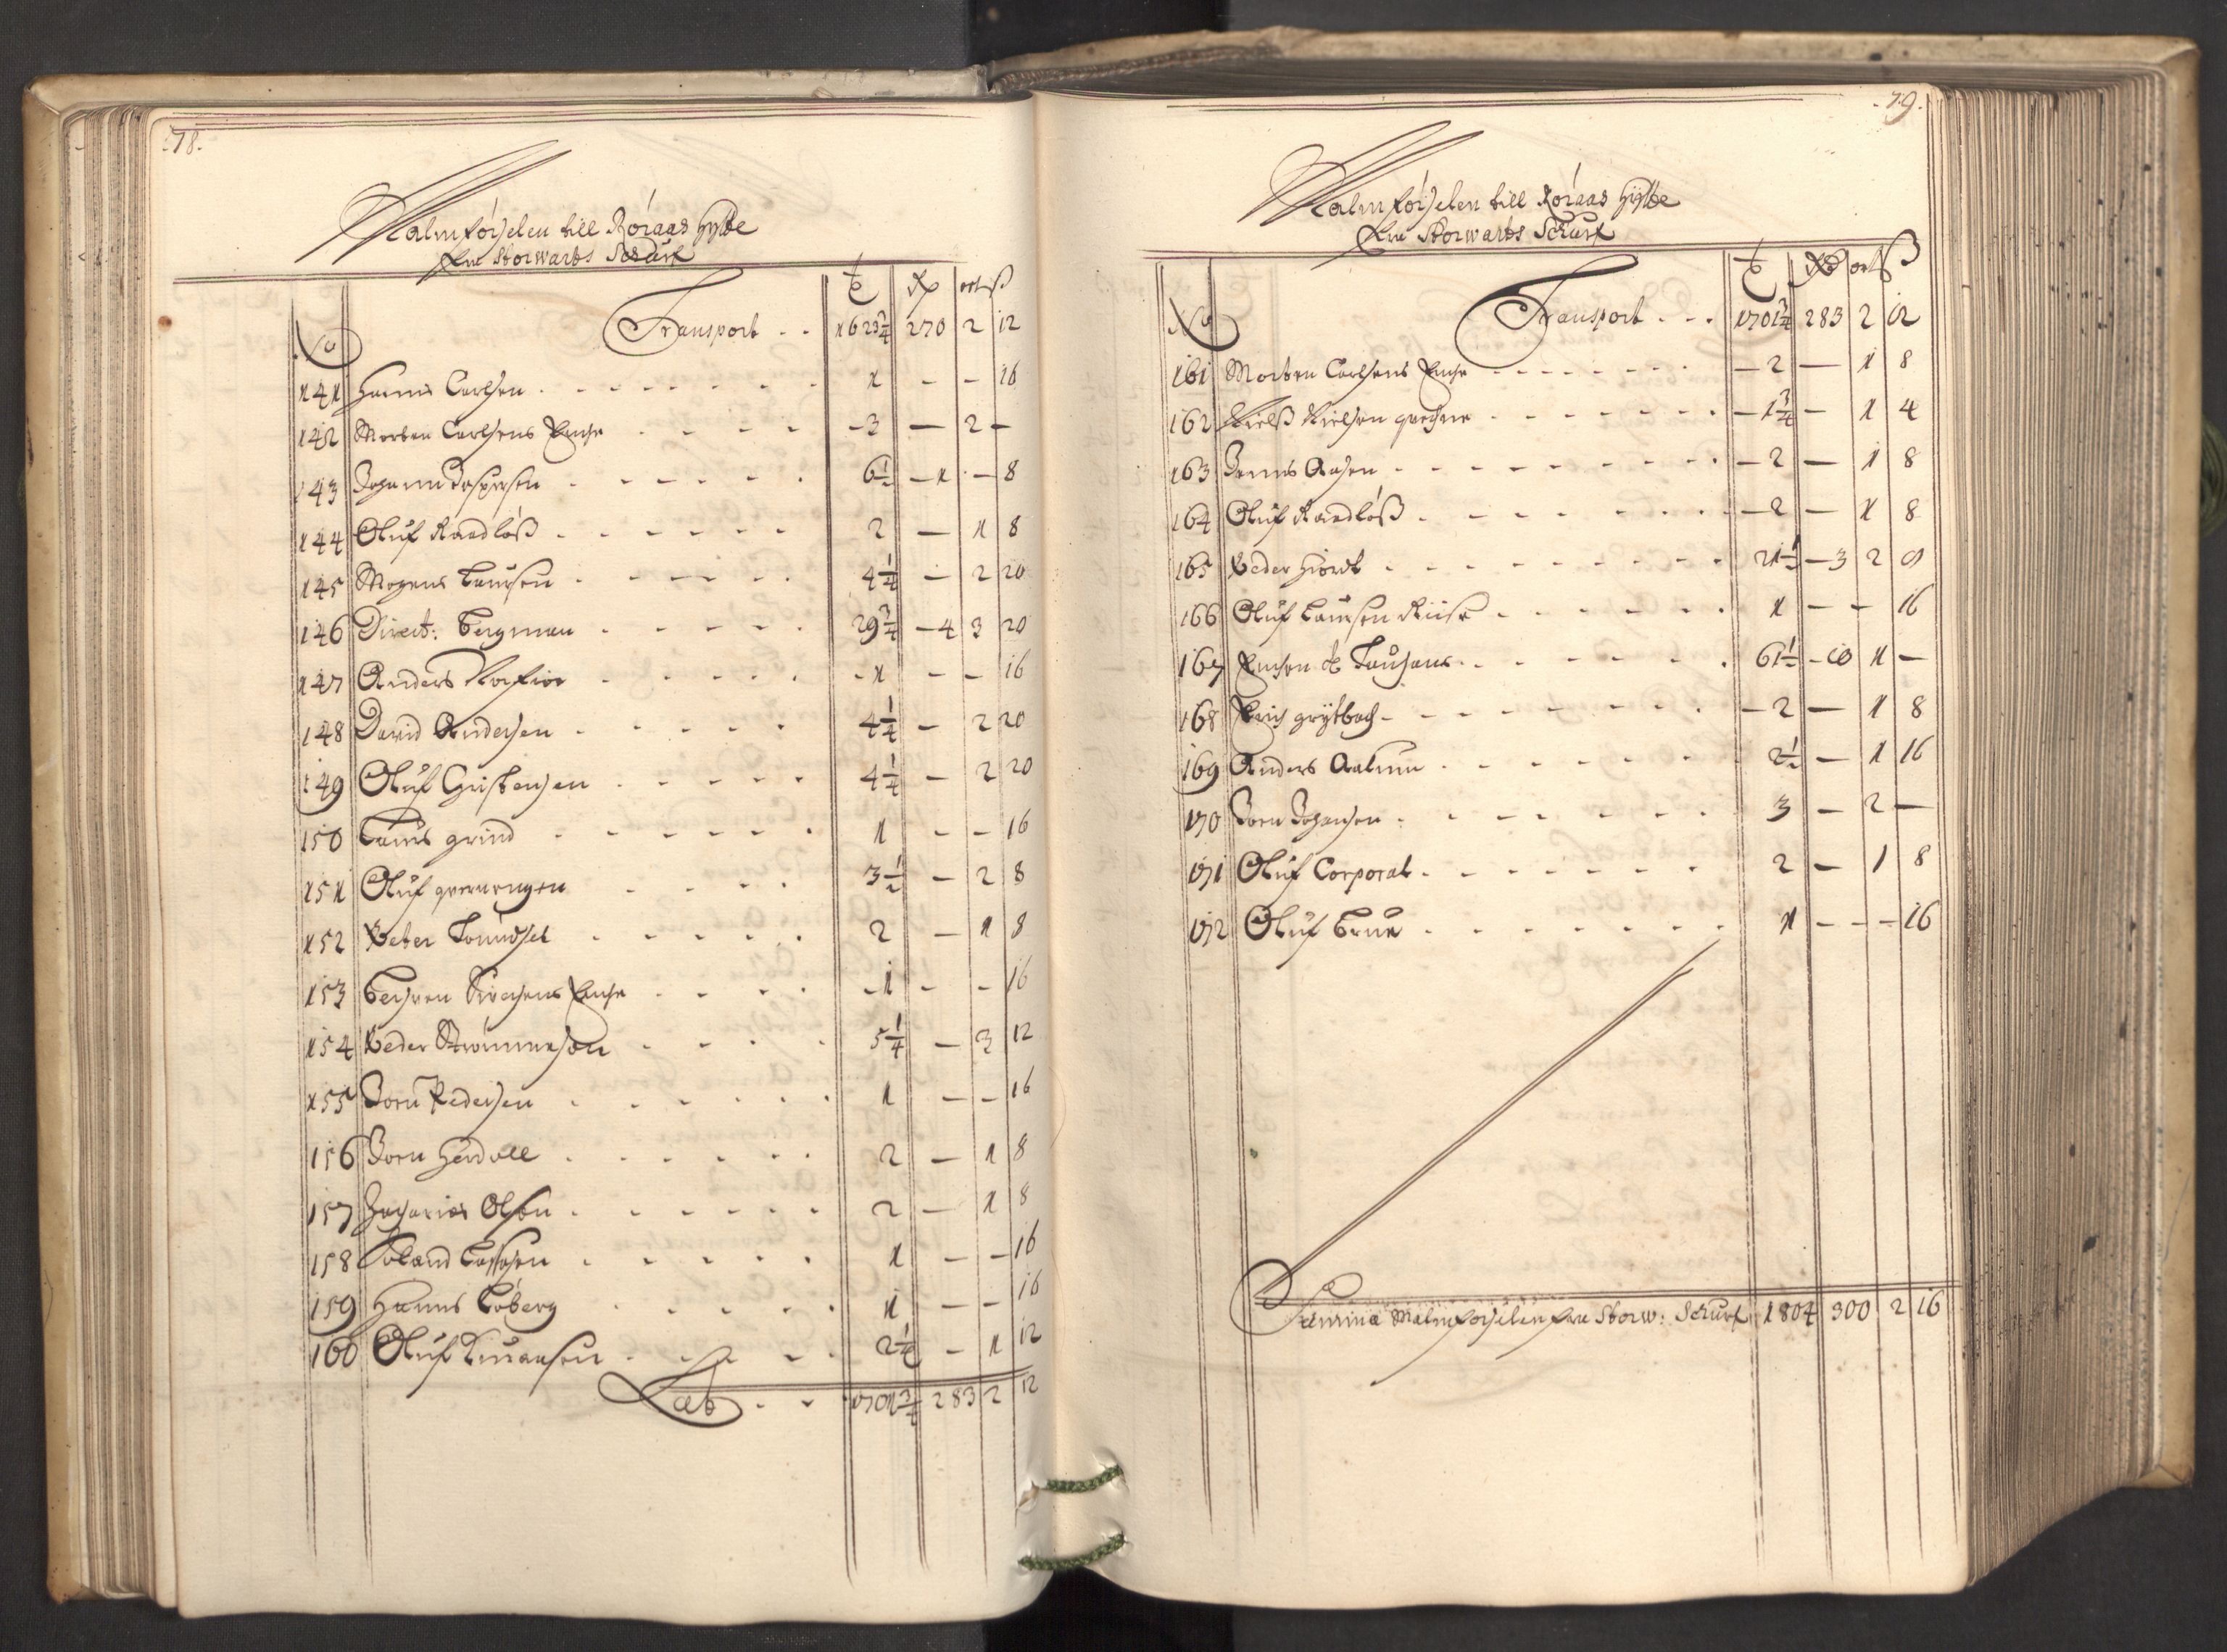 78.
Malmförselen till Röraas Hytte
fra Storwarts Schurf
No Transport - - 1623¾ 270 2 12
141 Hanns Carlsen - - - 1 - - 16
142 Morten Carlsens Enche - - - 3 - 2 -
143 Johann Jespersen - - - 6½ - 1 - 8
144 Oluf Raadlöß - - - 2 - 1 8
145 Mogens Laursen - - - 4¼ - 2 20
146 Direct: Bergman - - - 29¾ - 4 3 20
147 Anders - - - 1 - - 16
148 David Andersen - - - 4¼ - 2 20
149 Oluf Christensen - - - 4¼ - 2 20
150 Laurs grind - - - 1 - - 16
151 Oluf - - - 3½ - 2 8
152 Peter - - - 2 - 1 8
153 Enche - - - 1 - - 16
154 Peder - - - 5¼ - 3 12
155 Joen Pedersen - - - 1 - - 16
156 Joen - - - 2 - 1 8
157 Zacharias Olsen - - - 2 - 1 8
158 - - - 1 - - 16
159 Hanns Löberg - - - 1 - - 16
160 Oluf - - - 2¼ - 1 12
Lat - - 1701¾ 283 2 12
79.
Malmförselen till Röraas Hytte
fra Storwarts Schurf
No Transport - - - 1701¾ 283 2 12
161 Morten Carlsens Enche - - - 2 - 1 8
162 Nielß Nielsen - - - 1¾ - 1 4
163 Jenns Aasen - - - 2 - 1 8
164 Oluf Raadlöß - - - 2 - 1 8
165 Peder Hiordt - - - 21½ - 3 2 8
166 Oluf Laursen Riise - - - 1 - - 16
167 Enchen - - - 61½ - 10 1 -
168 Erich grytbach - - - 2 - 1 8
169 Anders Aalinn - - - 2½ - 1 16
170 Joen Johansen - - - 3 - 2 -
171 Oluf Corporal - - - 2 - 1 8
172 Oluf Brun - - - 1 - - - 16
Summa Malmförselen fra Storw: Schurf 1804 300 2 16